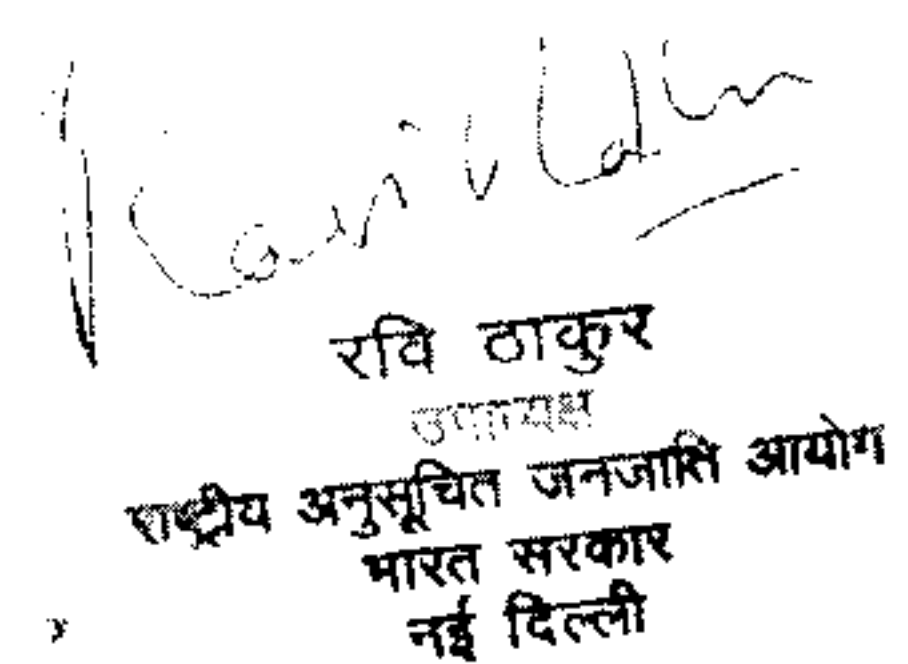 रवि ठाकुर
उपाध्यक्ष
राष्ट्रीय अनुसूचित जनजाति आयोग
भारत सरकार
नई दिल्ली